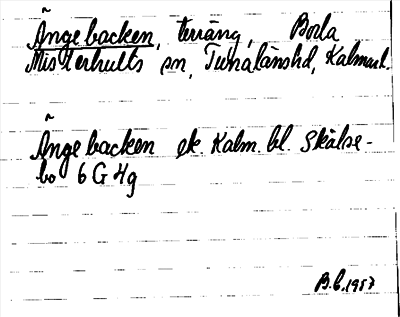 Ängebacken, terräng, Borla
Misterhults sn, Tunalänshd, Kalmarl.
Ängebacken ek. Kalm. bl. Skälse-
bo 6 G 4g
B.C. 1957